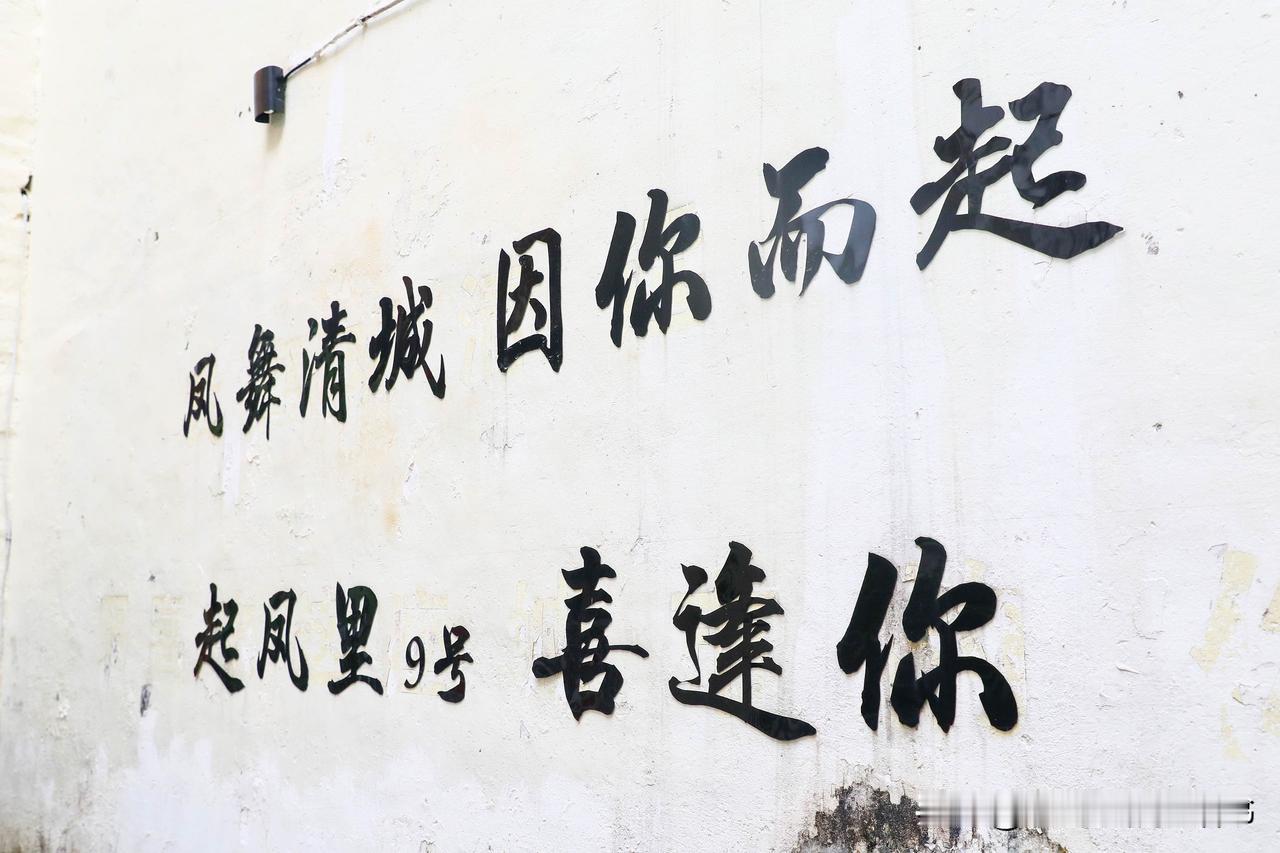 凤舞清城因你而起
起凤里9号喜逢你